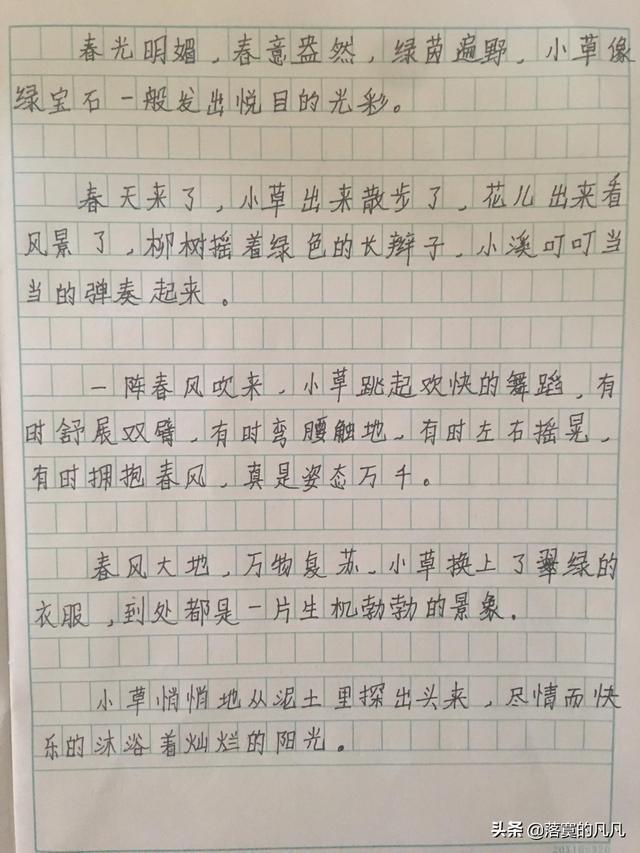 春光明媚，春意盎然，绿茵遍野，小草像
绿宝石一般发出悦目的光彩。
春天来了，小草出来散步了，花儿出来看
风景了，柳树摇着绿色的长辫子，小溪叮叮当
当的弹奏起来。
一阵春风吹来，小草跳起欢快的舞蹈，有
时舒展双臂，有时弯腰触地，有时左右摇晃，
有时拥抱春风，真是姿态万千。
春风大地，万物复苏，小草换上了翠绿的
衣服，到处都是一片生机勃勃的景象。
小草悄悄地从泥土里探出头来，尽情而快
乐的沐浴着灿烂的阳光。
头条 @落寞的凡凡